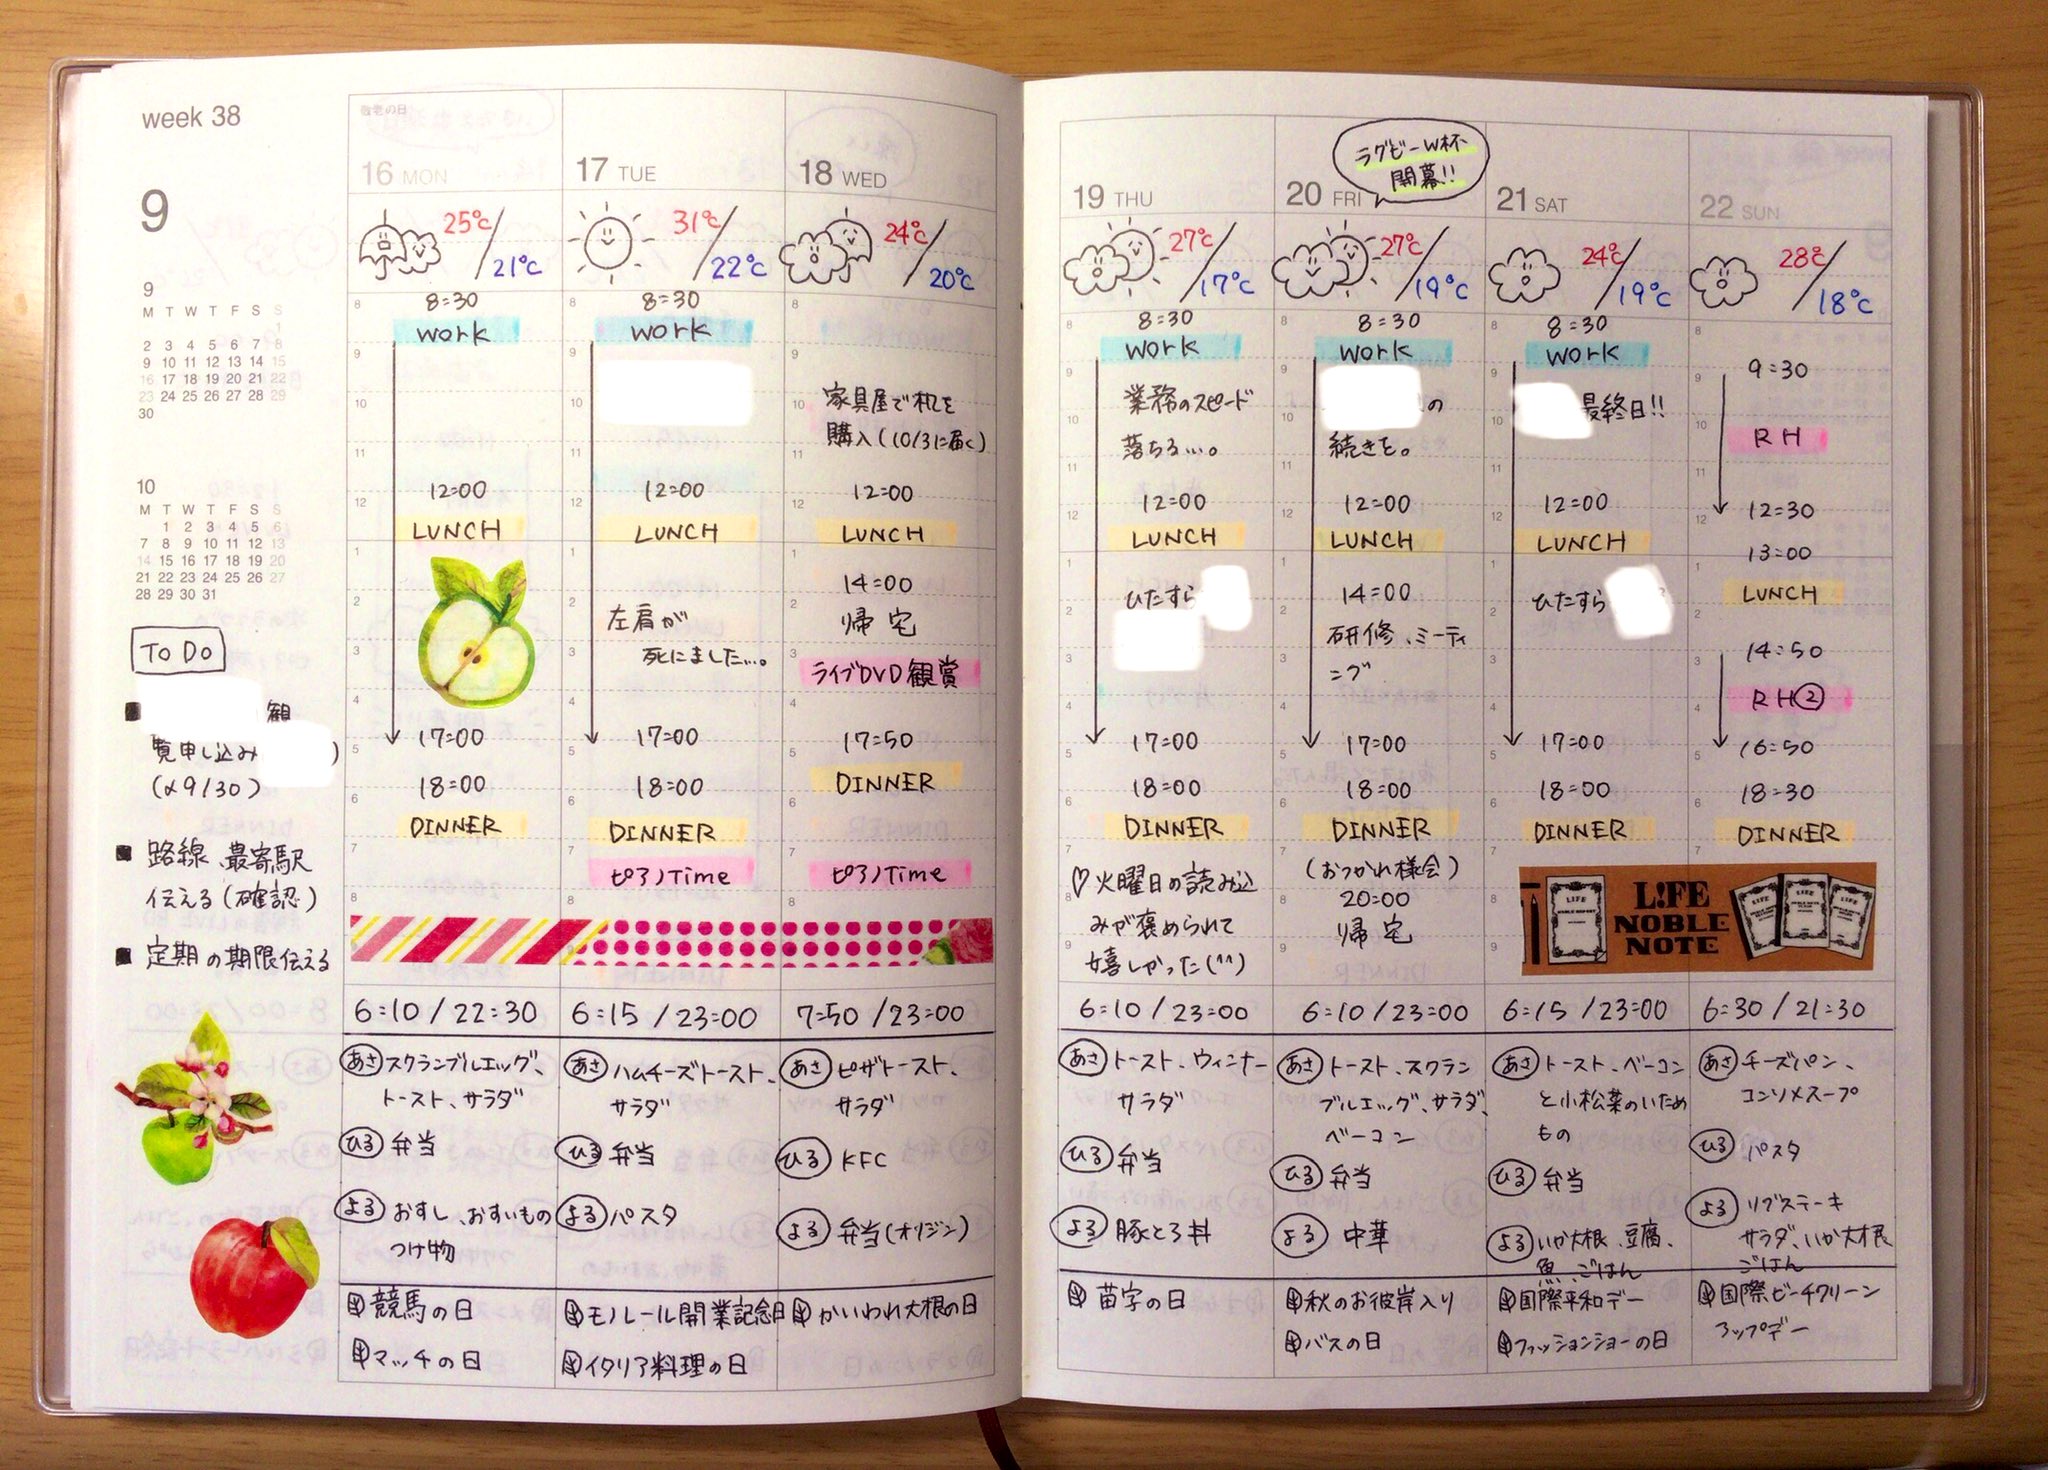 week 38
9
9
M T W T F S S
1
2 3 4 5 6 7 8
9 10 11 12 13 14 15
16 17 18 19 20 21 22
23 24 25 26 27 28 29
30
10
M T W T F S S
1 2 3 4 5 6
7 8 9 10 11 12 13
14 15 16 17 18 19 20
21 22 23 24 25 26 27
28 29 30 31
TO DO
■ 観
覧申し込み )
(〆9/30)
■ 路線、最寄駅
伝える(確認)
■ 定期の期限伝える
敬老の日
16 MON
25℃/21℃
8:30
work
12:00
LUNCH
17:00
18:00
DINNER
6:10 / 22:30
あさ スクランブルエッグ、
トースト、サラダ
ひる 弁当
よる おすし、おすいもの
つけ物
競馬の日
マッチの日
17 TUE
31℃/22℃
8:30
work
12:00
LUNCH
左肩が
死にました…。
17:00
18:00
DINNER
ピアノTime
6:15 / 23:00
あさ ハムチーズトースト、
サラダ
ひる 弁当
よる パスタ
モノレール開業記念日
イタリア料理の日
18 WED
24℃/20℃
家具屋で机を
購入(10/3に届く)
12:00
LUNCH
14:00
帰宅
ライブDVD観賞
17:50
DINNER
ピアノTime
7:50 / 23:00
あさ ピザトースト、
サラダ
ひる KFC
よる 弁当(オリジン)
かいわれ大根の日
19 THU
27℃/17℃
8:30
work
業務のスピード
落ちる…。
12:00
LUNCH
ひたすら
17:00
18:00
DINNER
♡火曜日の読み込
みが褒められて
嬉しかった(^^)
6:10 / 23:00
あさ トースト、ウィンナー
サラダ
ひる 弁当
よる 豚とろ丼
苗字の日
ラグビーW杯
開幕!!
20 FRI
27℃/19℃
8:30
work
の
続きを。
12:00
LUNCH
14:00
研修、ミーティ
ング
17:00
18:00
DINNER
(おつかれ様会)
20:00
帰宅
6:10 / 23:00
あさ トースト、スクラン
ブルエッグ、サラダ、
ベーコン
ひる 弁当
よる 中華
秋のお彼岸入り
バスの日
21 SAT
24℃/19℃
8:30
work
最終日!!
12:00
LUNCH
ひたすら
17:00
18:00
DINNER
6:15 / 23:00
あさ トースト、ベーコン
と小松菜のいため
もの
ひる 弁当
よる いか大根、豆腐、
魚、ごはん
国際平和デー
ファッションショーの日
22 SUN
28℃/18℃
9:30
RH
12:30
13:00
LUNCH
14:50
RH②
16:50
18:30
DINNER
L!FE
NOBLE
NOTE
6:30 / 21:30
あさ チーズパン、
コンソメスープ
ひる パスタ
よる リブステーキ
サラダ、いか大根
ごはん
国際ビーチクリーン
アップデー